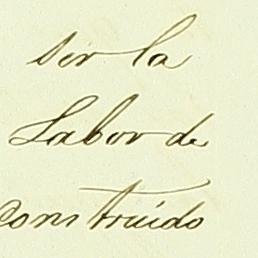 ser la
Labor de
construido